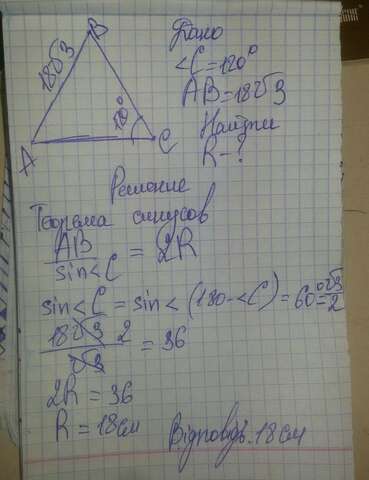 B
18√3
120°
A
C
Дано
<C=120°
AB=18√3
Найти
R-?
Решение
Теорема синусов
AB/sin<C = 2R
sin<C = sin<(180-<C) = 60° = √3/2
18√3 2/√3 = 36
2R = 36
R = 18см
Відповідь: 18см